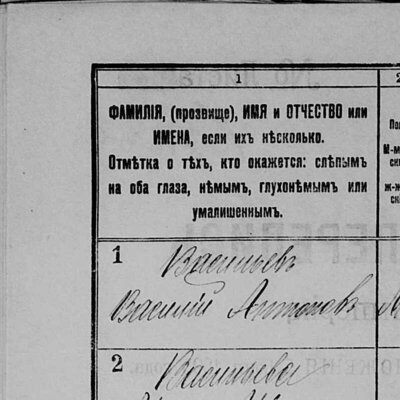 1
2
ФАМИЛІЯ, (прозвище), ИМЯ и ОТЧЕСТВО или
ИМЕНА, если ихъ нѣсколько.
Отмѣтка о тѣхъ, кто окажется: слѣпымъ
на оба глаза, нѣмымъ, глухонѣмымъ или
умалишеннымъ.
1 Васильевъ
Василій Антоновъ
2 Васильева